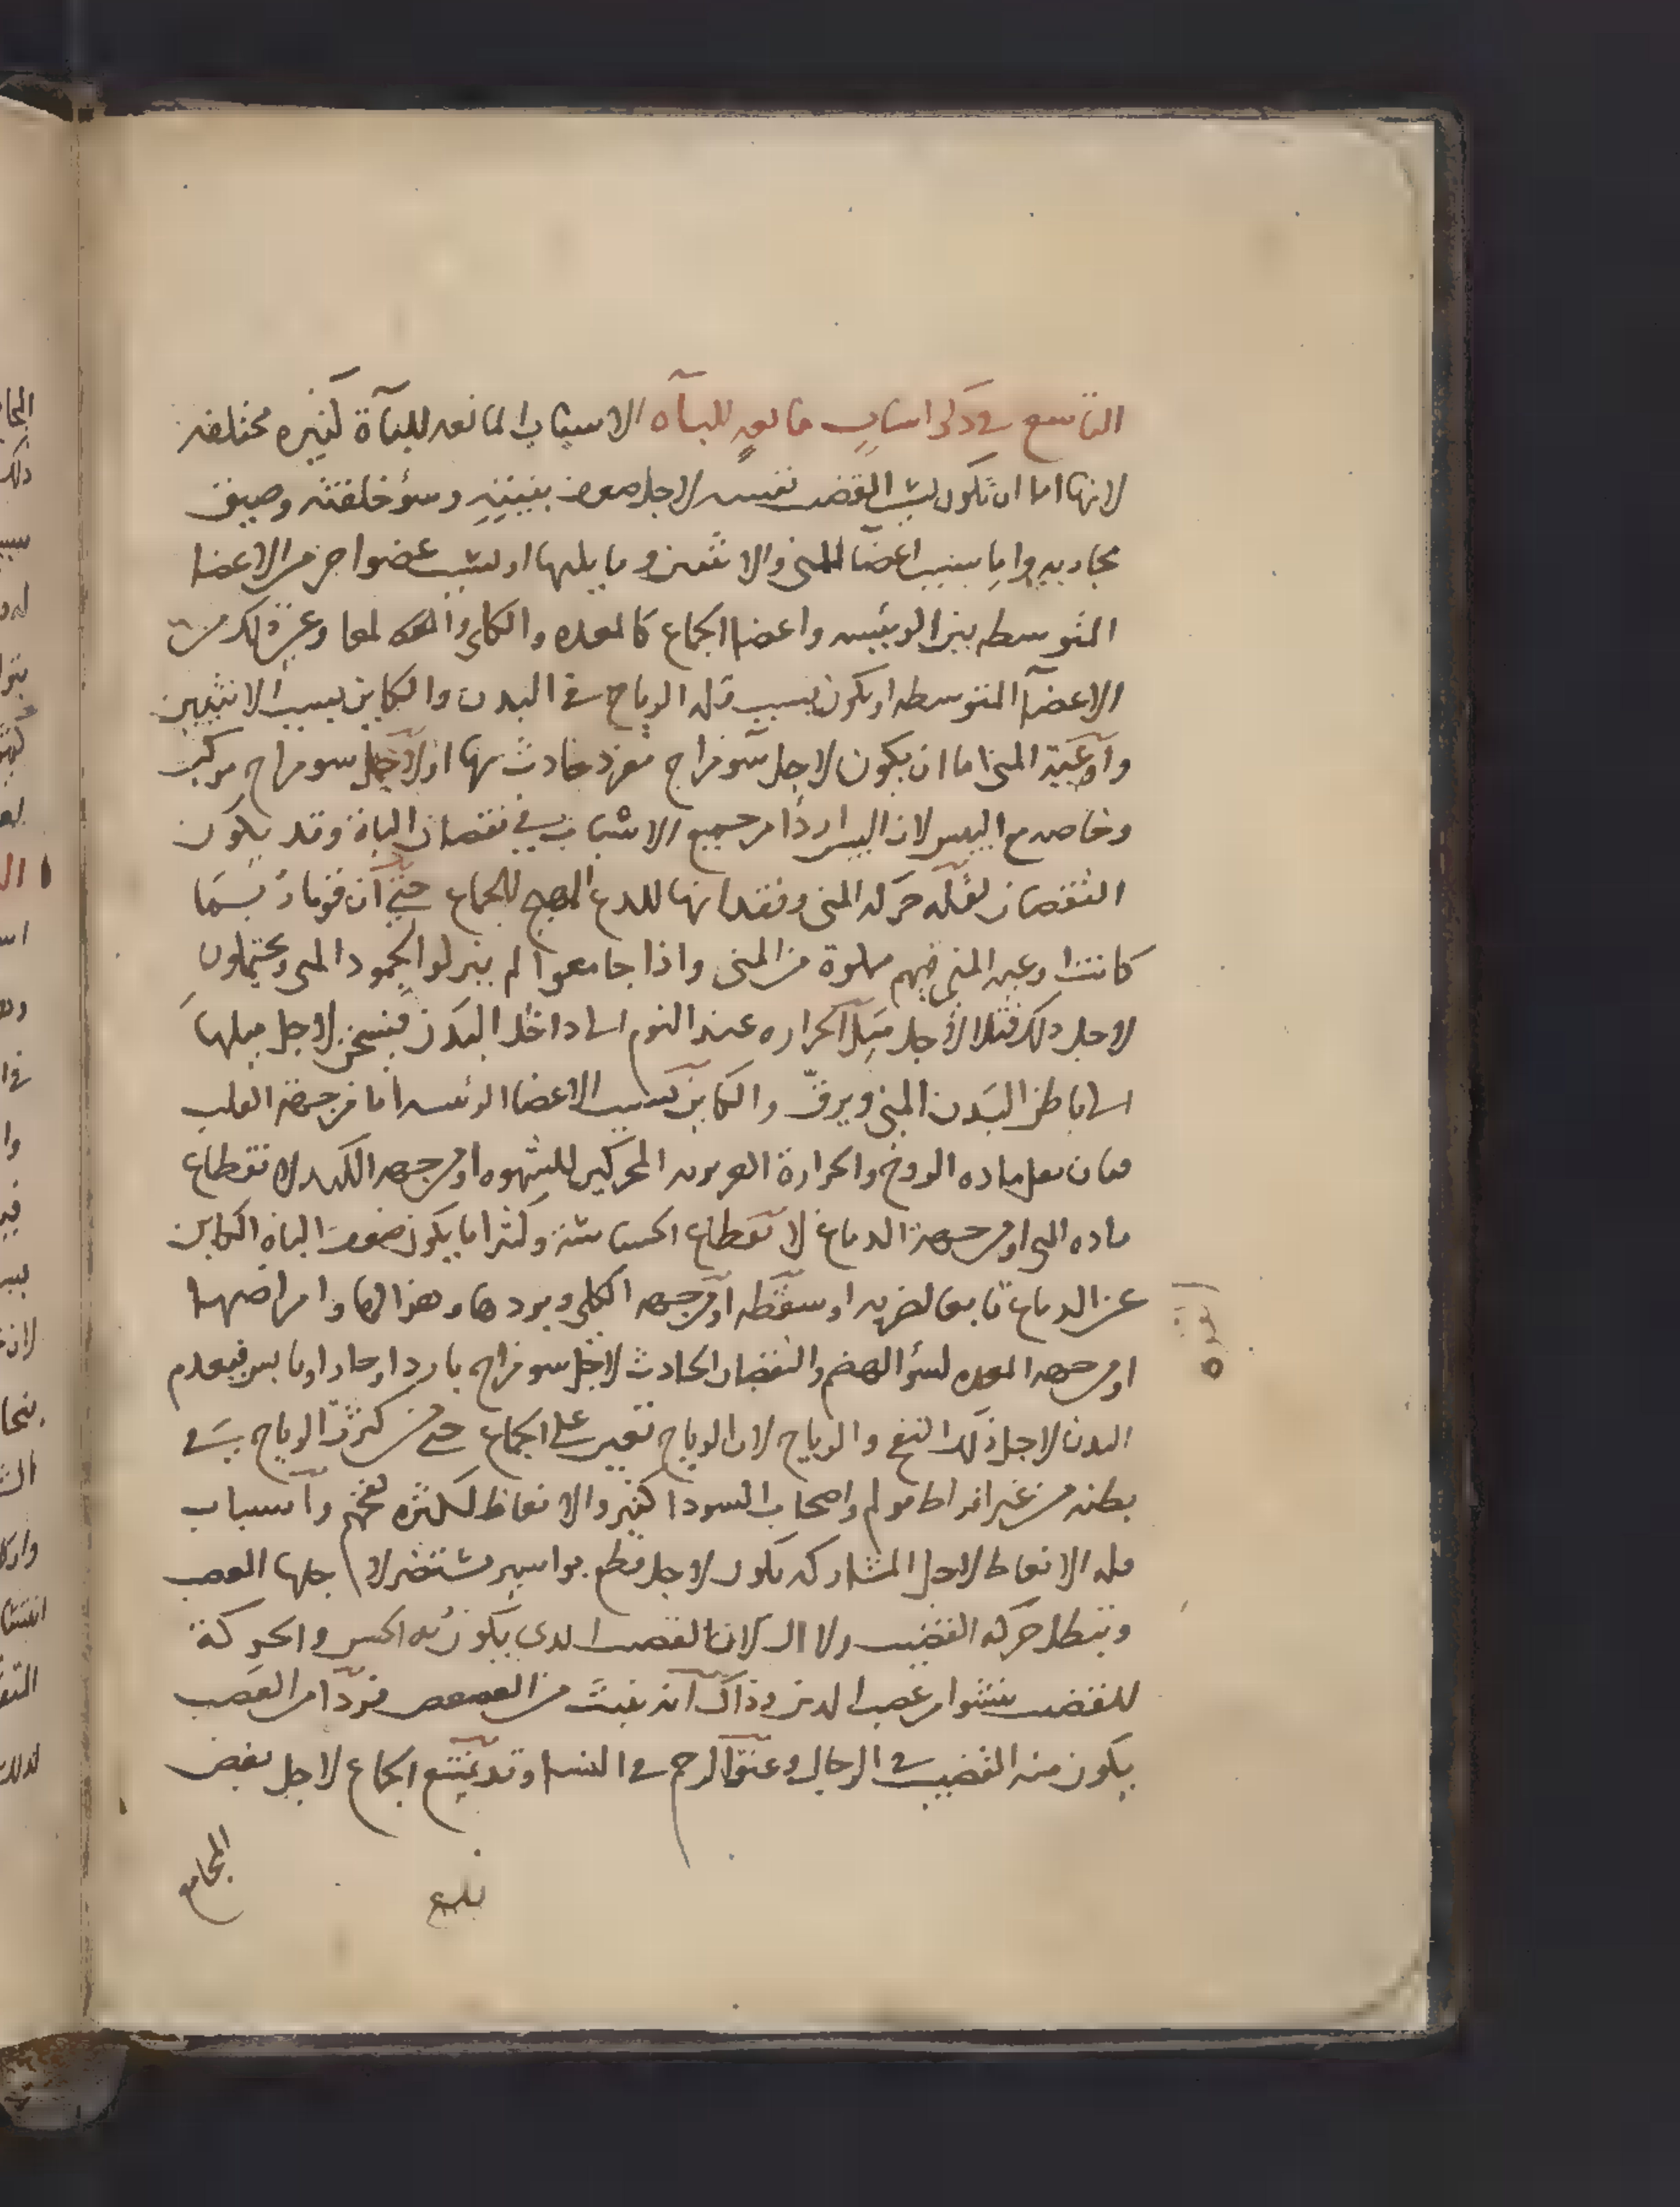 التاسع في ذكر اسباب مانعه للباه الاسباب المانعه للباة كثيره مختلفه
لانها اما ان تكون بسبب القضيب نفسه لاجل ضعف بنيته وسؤ خلقته وضيق
مجاريه واما بسبب اعضا المنى والانثيين وما يليها او بسبب عضو اخر من الاعضا
المتوسطه بين الرئيسه واعضا الجماع كالمعده والكلى والمعا وغير ذلك من
الاعضا المتوسطه او يكون بسبب قله الرياح في البدن والكاين بسبب الانثيين
وآوعية المنى اما ان يكون لاجل سو مزاج مفرد حادث بها او لاجل سو مزاج مركب
وخاصه مع اليبس لان اليبس اردا من جميع الاسباب في نقصان الباة وقد يكون
النقصان لقله حركه المنى وفقدانها للدع المهيج للجماع حتى ان قوما ربما
كانت اوعيه المنى فيهم مملوة من المنى واذا جامعوا لم ينزلوا لجمود المنى ويحتملون
لاجل ذلك ليلا لاجل ميل الحراره عند النوم الى داخل البدن فيسخن لاجل ميلها
الى باطن البدن المنى ويرق والكاين بسبب الاعضا الرئسه اما من جهة القلب
فبان يقل ماده الروح والحرارة الغريزيه المحركين للشهوه او من جهه الكبد لانقطاع
ماده المنى او من جهة الدماغ لانقطاع الحساسة وكثيرا ما يكون ضعف الباه الكاين
عن الدماغ تابعا لضربه او سقطه او من جهه الكلى وبردها وهزالها وامراضها
او من جهه المعده لسؤ الهضم والنقصان الحادث لاجل سو مزاج بارد او حار او يابس فيعدم
البدن لاجل ذلك النفخ والرياح لان الرياح تعين على الجماع حتى من كثرت الرياح في
بطنه من غير افراط مولم واصحاب السودا كثيروا الانعاظ لكثره نفخهم واسباب
قله الانعاظ لاجل المشاركه يكون لاجل قطع بواسير يستضر لاجلها العصب
وتبطل حركه القضيب لان العصب الدى يكون به الحس والحركة
للقضيب ينشوا من عصب الدبر وذاك انه ينبت من العصعص فردا من العصب
يكون منه القضيب في الرجال وعنق الرحم في النسا وقد يمتنع الجماع لاجل بغض
المجامع
بلغ